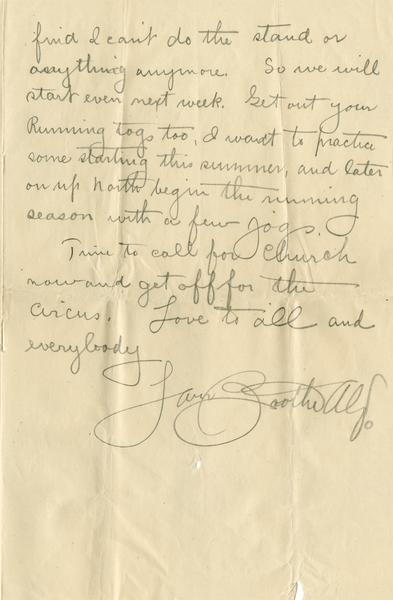 find I can't do the stand or
anything anymore. So we will
start even next week. Get out your
Running togs too, I want to practice
some starting this summer, and later
on up North begin the running
season with a few jogs.
Time to call for Church
now and get off for the
Circus. Love to all and
everybody
Boothe